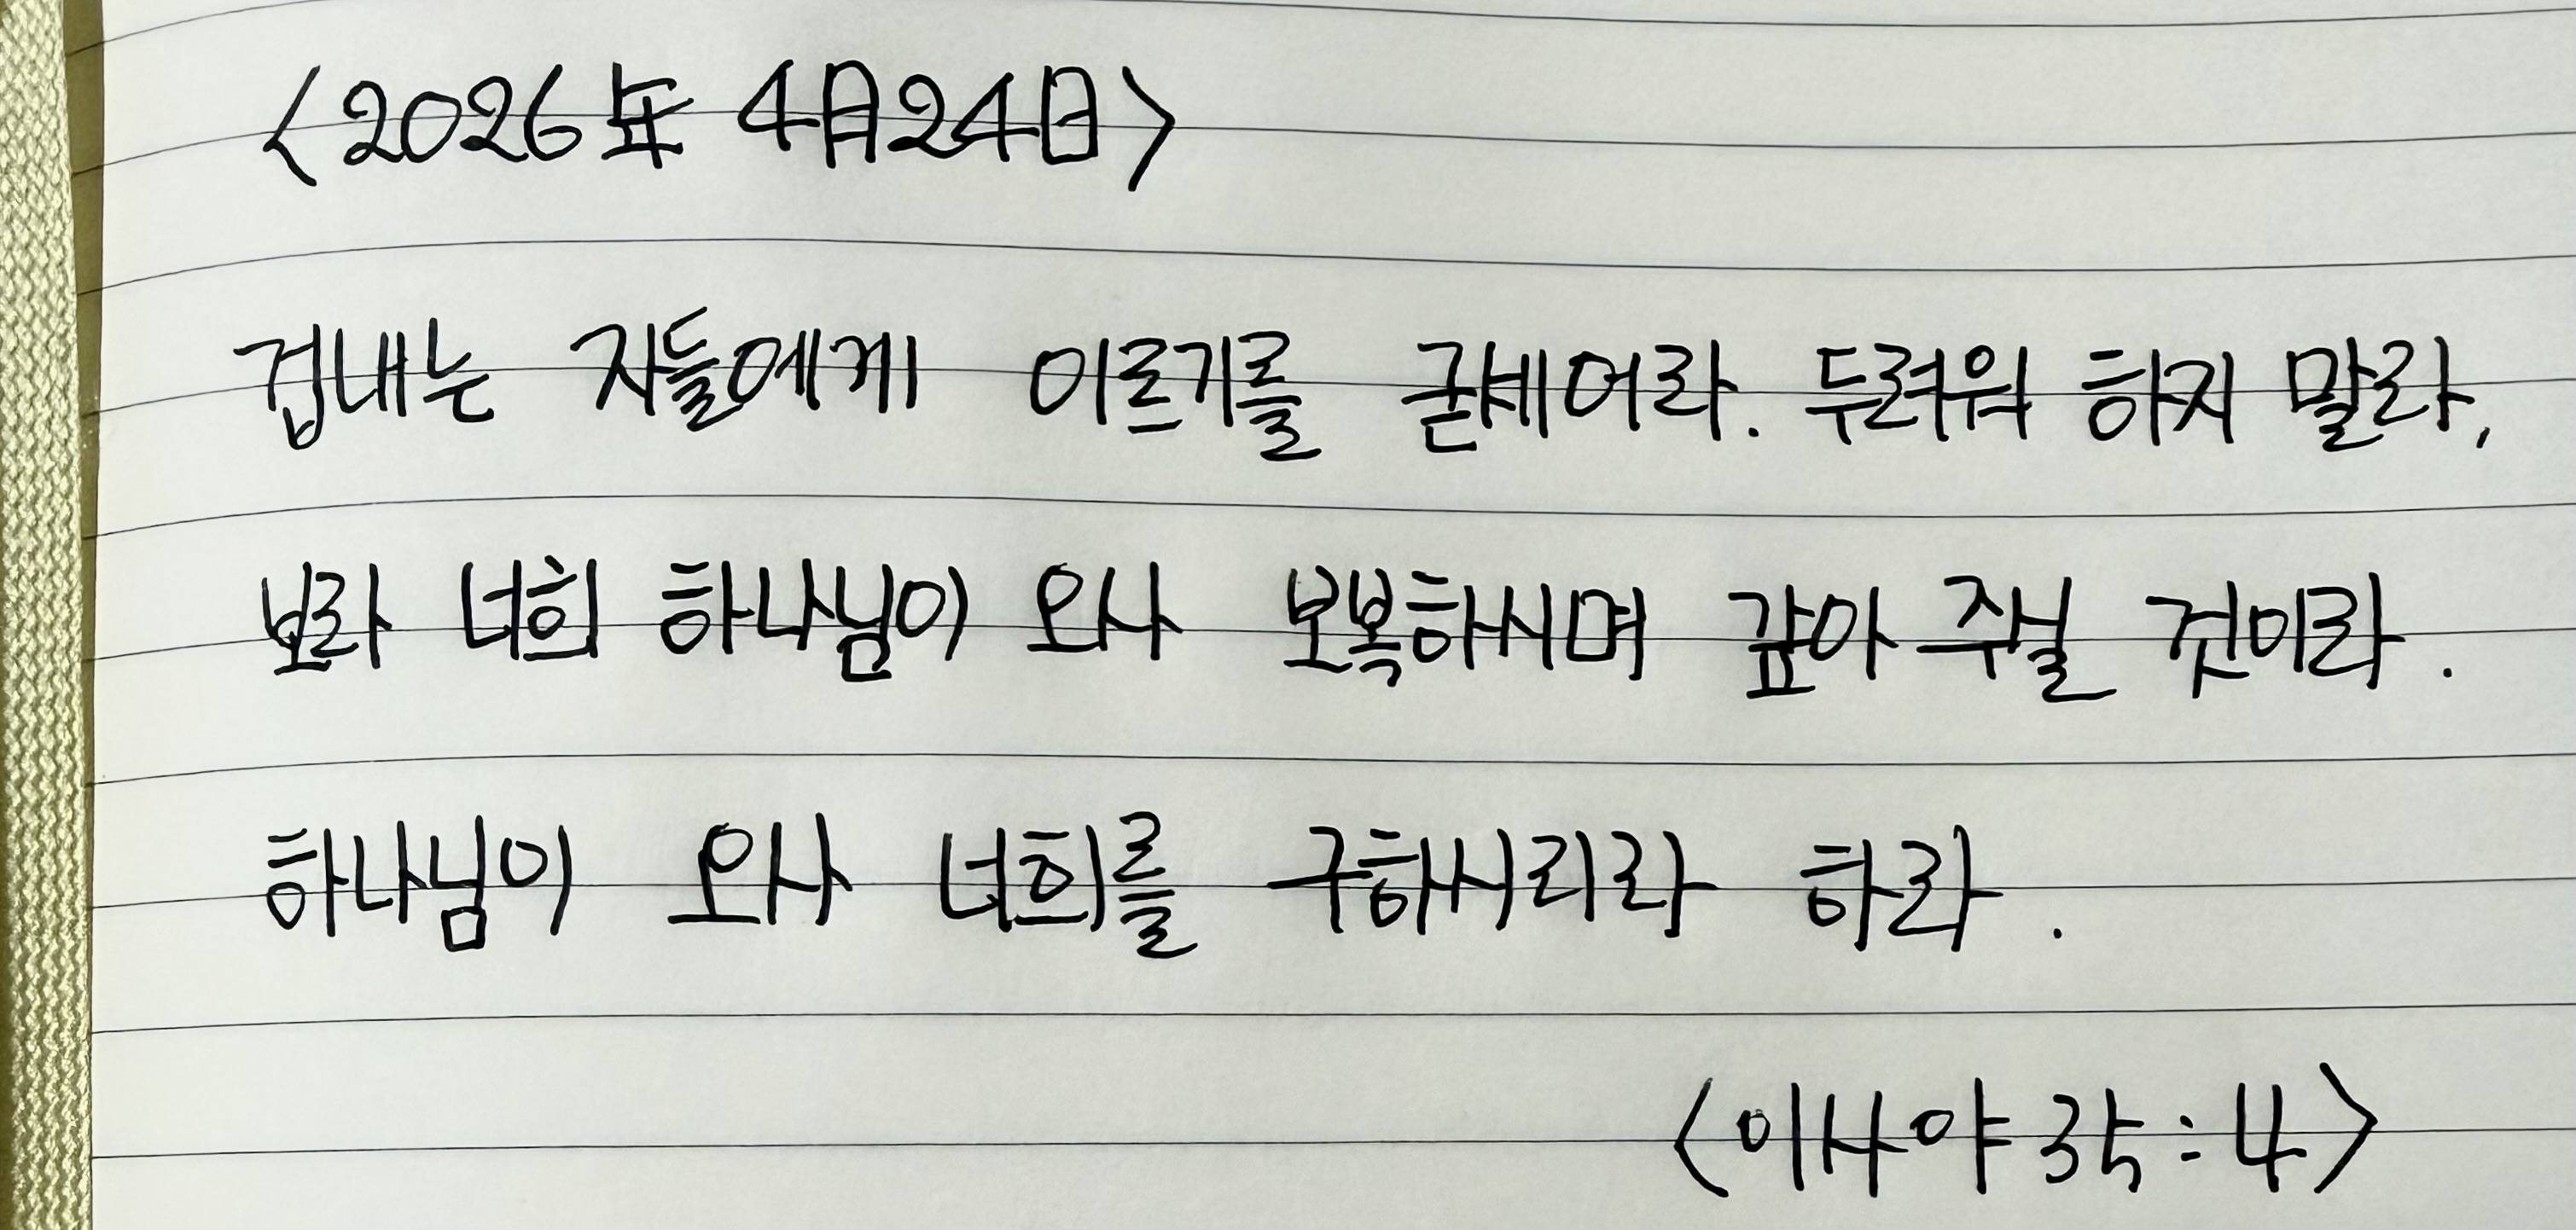 <2026年 4月24日>
겁내는 자들에게 이르기를 굳세어라. 두려워 하지 말라,
보라 너희 하나님이 오사 보복하시며 갚아 주실 것이라.
하나님이 오사 너희를 구하시리라 하라.
<이사야 35:4>